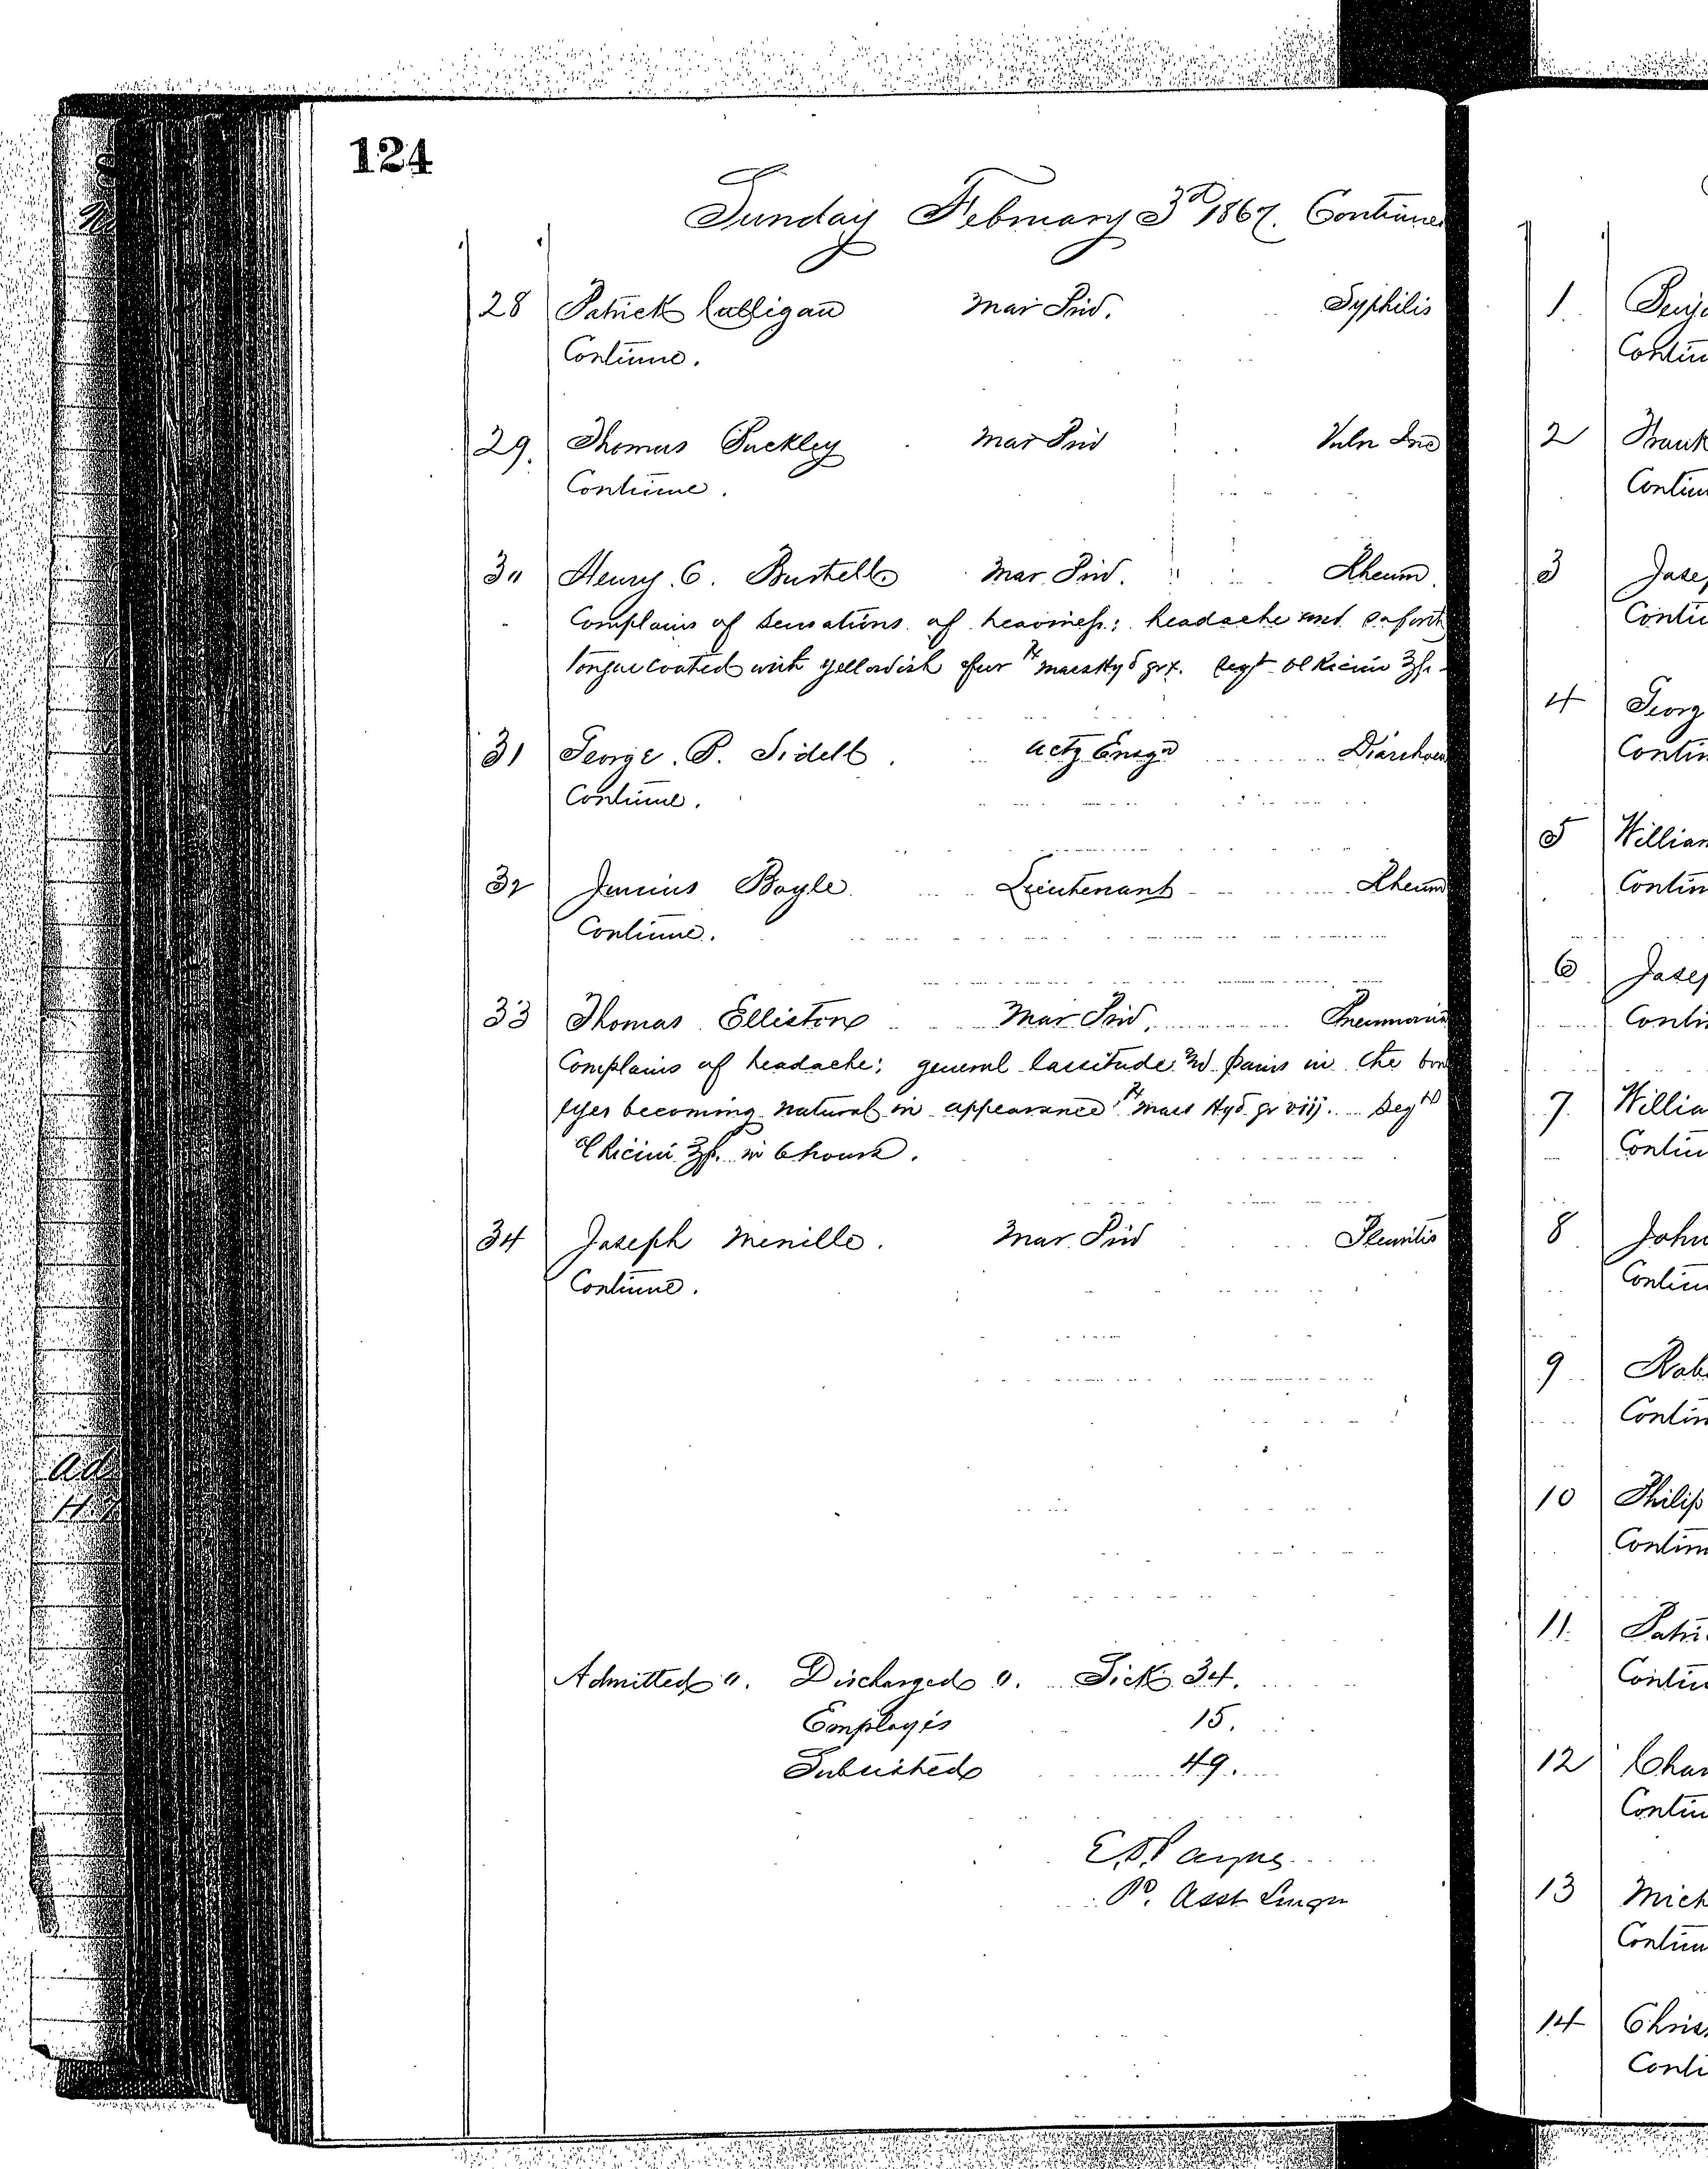 124
Sunday February 3d 1867. Continue
28 Patrick Culligan Mar Priv. Syphilis
Continue.
29. Thomas Buckley Mar Priv Vuln Inc
Continue.
30 Henry C. Burtell Mar Priv. Rheum.
Complains of sensations of heaviness; headache and
Tongue coated with yellowish fur ℞ Mass Hyd gr x. Seqt Ol Ricini ℥fs
31 George P. Sidell. Actg Ensgn Diarrhoea
Continue.
32 Junius Boyle Lieutenant Rheum
Continue.
33 Thomas Elliston Mar Priv. Pneumonia
Complains of headache; general lassitude and pains in the bon
Eyes becoming natural in appearance ℞ Mass Hyd gr viij. Seqtr
Ol Ricini ℥fs. in 6 hours.
34 Joseph Menille. Mar. Priv Pleuritis
Continue.
Admitted 0. Discharged 0. Sick 34.
Employés 15.
Subsisted 49.
Pd. Asst Surgn
1
Contin
2 Frank
Contin
3 Josep
Contin
4 Georg
Contin
5 William
Contin
6 Josep
Contin
7 Willia
Contin
8 John
Contin
9 Rob
Contin
10 Philip
Contin
11. Patri
Contin
12 Char
Contin
13 Mich
Contin
14 Chris
Conti